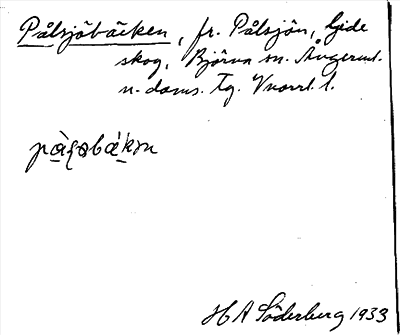 Pålsjöbäcken, fr. Pålsjön, Gide
skog, Björna sn. Ångerml.
n. doms. Tg. Vnorrl. l.
H A Söderberg 1933